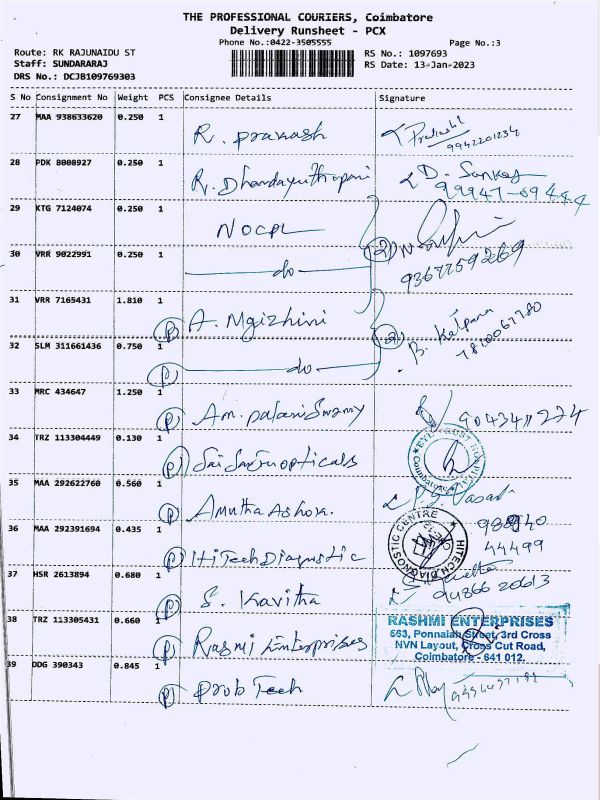 THE PROFESSIONAL COURIERS, Coimbatore
Delivery Runsheet - PCX
Phone No.:0422-3505555 Page No.:3
Route: RK RAJUNAIDU ST RS No.: 1097693
Staff: SUNDARARAJ RS Date: 13-Jan-2023
DRS No.: DCJB109769303
S No Consignment No Weight PCS Consignee Details Signature
27 MAA 938633620 0.250 1 R. Prakash
9942201234
28 PDK 8008927 0.250 1 R. Dhandayuthapani D. Sankar
29 KTG 7124074 0.250 1 NOCPL
30 VRR 9022991 0.250 1 do (2) 9367759269
31 VRR 7165431 1.810 1 (P) A. Mgizhini B. Kalpana
32 SLM 311661436 0.750 1 (P) do
33 MRC 434647 1.250 1 (P) Am. palaniswamy
34 TRZ 113304449 0.130 1 (P) opticals
35 MAA 292622760 0.560 1 (P) Amutha Ashok.
36 MAA 292391694 0.435 1 (P) HiTech Diagnostic 44499
HITECH DIAGNOSTIC CENTRE
37 HSR 2613894 0.680 1 (P) S. Kavitha 9486620613
38 TRZ 113305431 0.660 1 (P) Rashmi Enterprises
RASHMI ENTERPRISES
563, Ponnaiah Street, 3rd Cross
NVN Layout, Cross Cut Road,
Coimbatore - 641 012.
39 DDG 390343 0.845 1 (P) Prob Tech